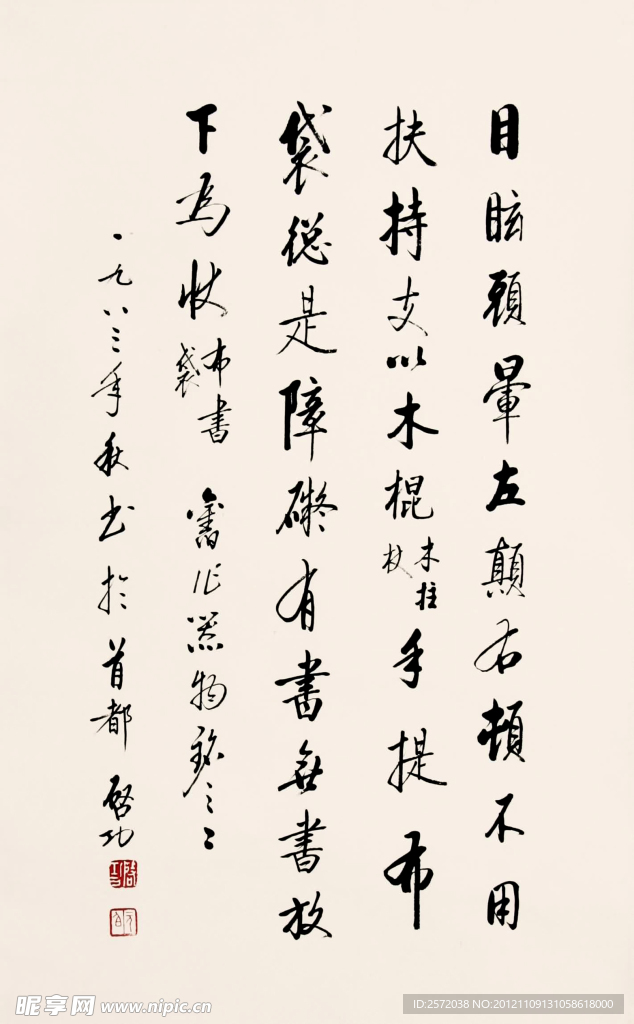 目眩頭暈左顛右頓不用
扶持支以木棍木拄杖手提布
袋總是障礙有書無書放
下為快布書袋 舊作器物銘之二
一九八三年秋书於首都 啓功
啟功
元白
昵享网 www.nipic.cn
ID:2572038 NO:20121109131058618000